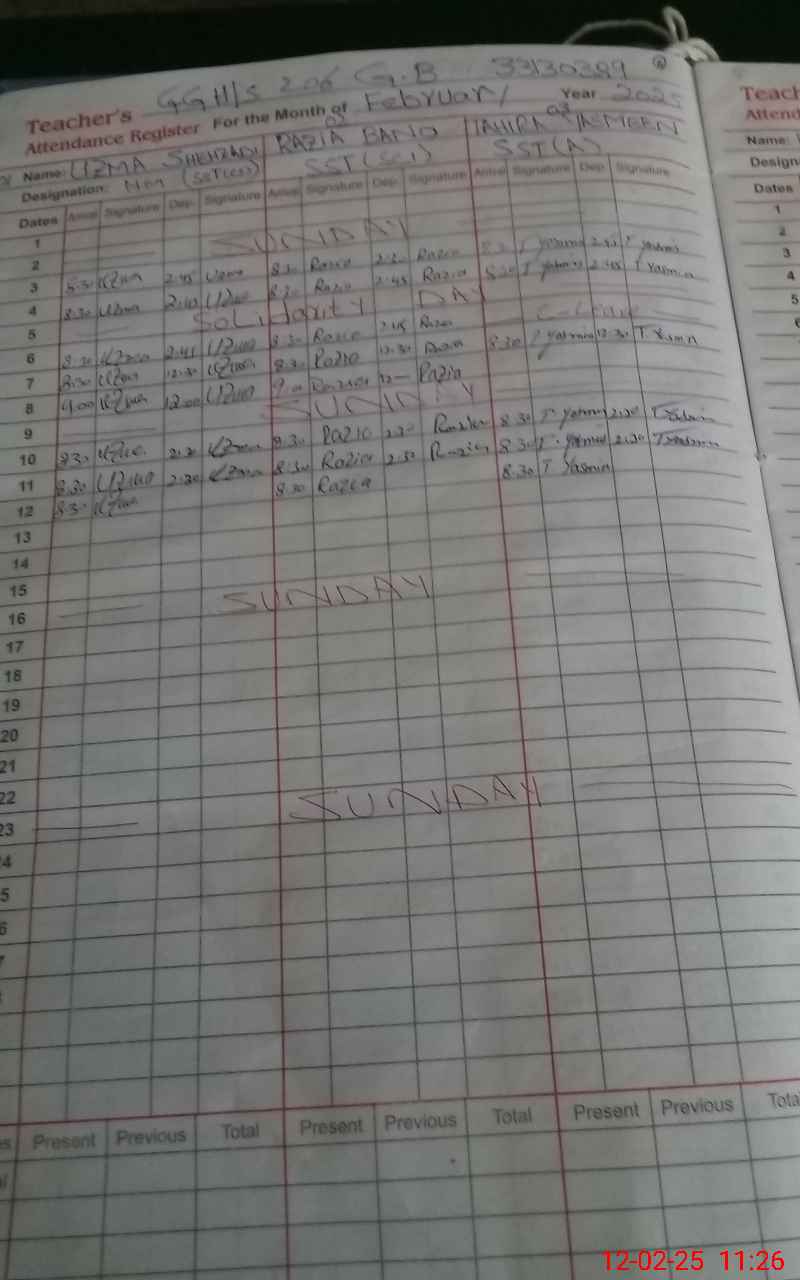 GGH/S 206 G.B 33130389
Teacher's
Attendance Register For the Month of February Year 2025
Name: UZMA SHEHZADI RAZIA BANO TAHIRA YASMEEN
Designation: SST (Sci) SST(A)
Dates Arrival Signature Dep. Signature Arrival Signature Dep. Signature Arrival Signature Dep. Signature
1
2 SUNDAY
3 8.30 Uzma 2.45 Uzma 8.30 Razia Razia
4 8.30 Uzma 2.45 Uzma 8.30 Razia 2.45 Razia 8.30 T Yasmin 2.45 T Yasmin
5 SoLidarity DAY
6 8.30 Uzma 2.45 Uzma 8.30 Razia 2.45 Razia C-Leave
7 8.30 Uzma 12.30 Uzma 8.30 Razia 12.30 Razia 8.30 T Yasmin 12.30 T. Yasmin
8 9.00 Uzma 12.00 Uzma 9.0 Razia 12 — Razia
9 SUNDAY
10 8.30 Uzma 2.30 Uzma 8.30 Razia 2.30 Razia 8.30 T Yasmin 2.30 T Yasmin
11 8.30 Uzma 2.30 Uzma 8.30 Razia 2.30 Razia 8.30 T. Yasmin 2.30 T Yasmin
12 8.30 Uzma 8.30 Razia 8.30 T Yasmin
13
14
15
16 SUNDAY
17
18
19
20
21
22
23 SUNDAY
4
5
6
Present Previous Total Present Previous Total Present Previous Total
Teach
Attend
Name:
Design
Dates
1
2
3
4
5
12-02-25 11:26